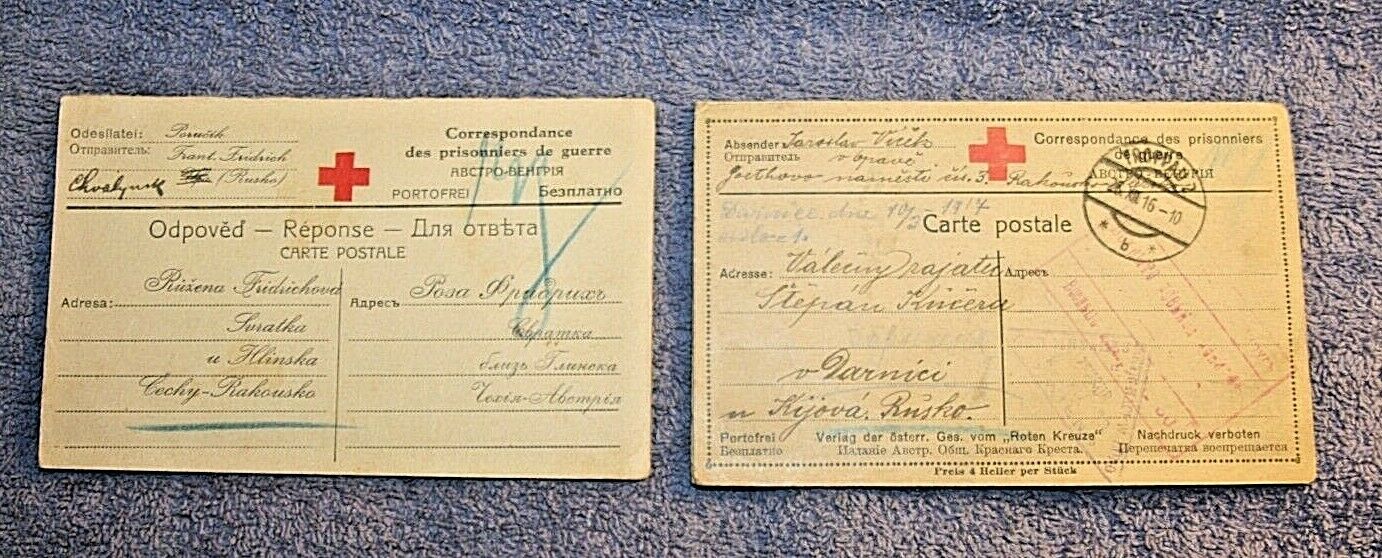 Odesílatel: Poručík
Отправитель: Frant. Fridrich
Chvalynsk (Rusko)
Correspondance
des prisonniers de guerre
АВСТРО-ВЕНГРІЯ
PORTOFREI Безплатно
Odpověď — Réponse — Для отвѣта
CARTE POSTALE
Adresa: Růžena Fridrichová
Svratka
u Hlinska
Čechy-Rakousko
Адресъ Роза Фридрихъ
Свратка
близъ Глинска
Чехія-Австрія
Absender Jaroslav Vlček
Отправитель v Opavě
Goethovo náměstí čís. 3. Rakousko
Correspondance des prisonniers
de guerre
АВСТРО-ВЕНГРІЯ
XII. 16-10
* b. *
Darnice dne 10/3 - 1917
Carte postale
Adresse: Válečný zajatec
Адресъ
Štěpán Kučera
v Darnici
u Kijova, Rusko.
Portofrei Verlag der österr. Ges. vom „Roten Kreuze" Nachdruck verboten
Безплатно Изданіе Австр. Общ. Краснаго Креста. Перепечатка воспрещается
Preis 4 Heller per Stück